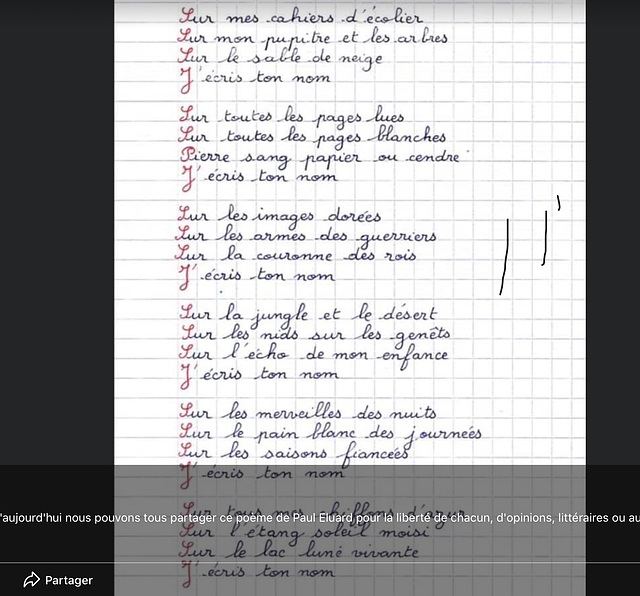 Sur mes cahiers d'écolier
Sur mon pupitre et les arbres
Sur le sable de neige
J'écris ton nom
Sur toutes les pages lues
Sur toutes les pages blanches
Pierre sang papier ou cendre
J'écris ton nom
Sur les images dorées
Sur les armes des guerriers
Sur la couronne des rois
J'écris ton nom
Sur la jungle et le désert
Sur les nids sur les genêts
Sur l'écho de mon enfance
J'écris ton nom
Sur les merveilles des nuits
Sur le pain blanc des journées
Sur les saisons fiancées
J'écris ton nom
Sur tous mes chiffons d'azur
'aujourd'hui nous pouvons tous partager ce poème de Paul Eluard pour la liberté de chacun, d'opinions, littéraires ou au
Sur l'étang soleil moisi
Sur le lac lune vivante
J'écris ton nom
Partager